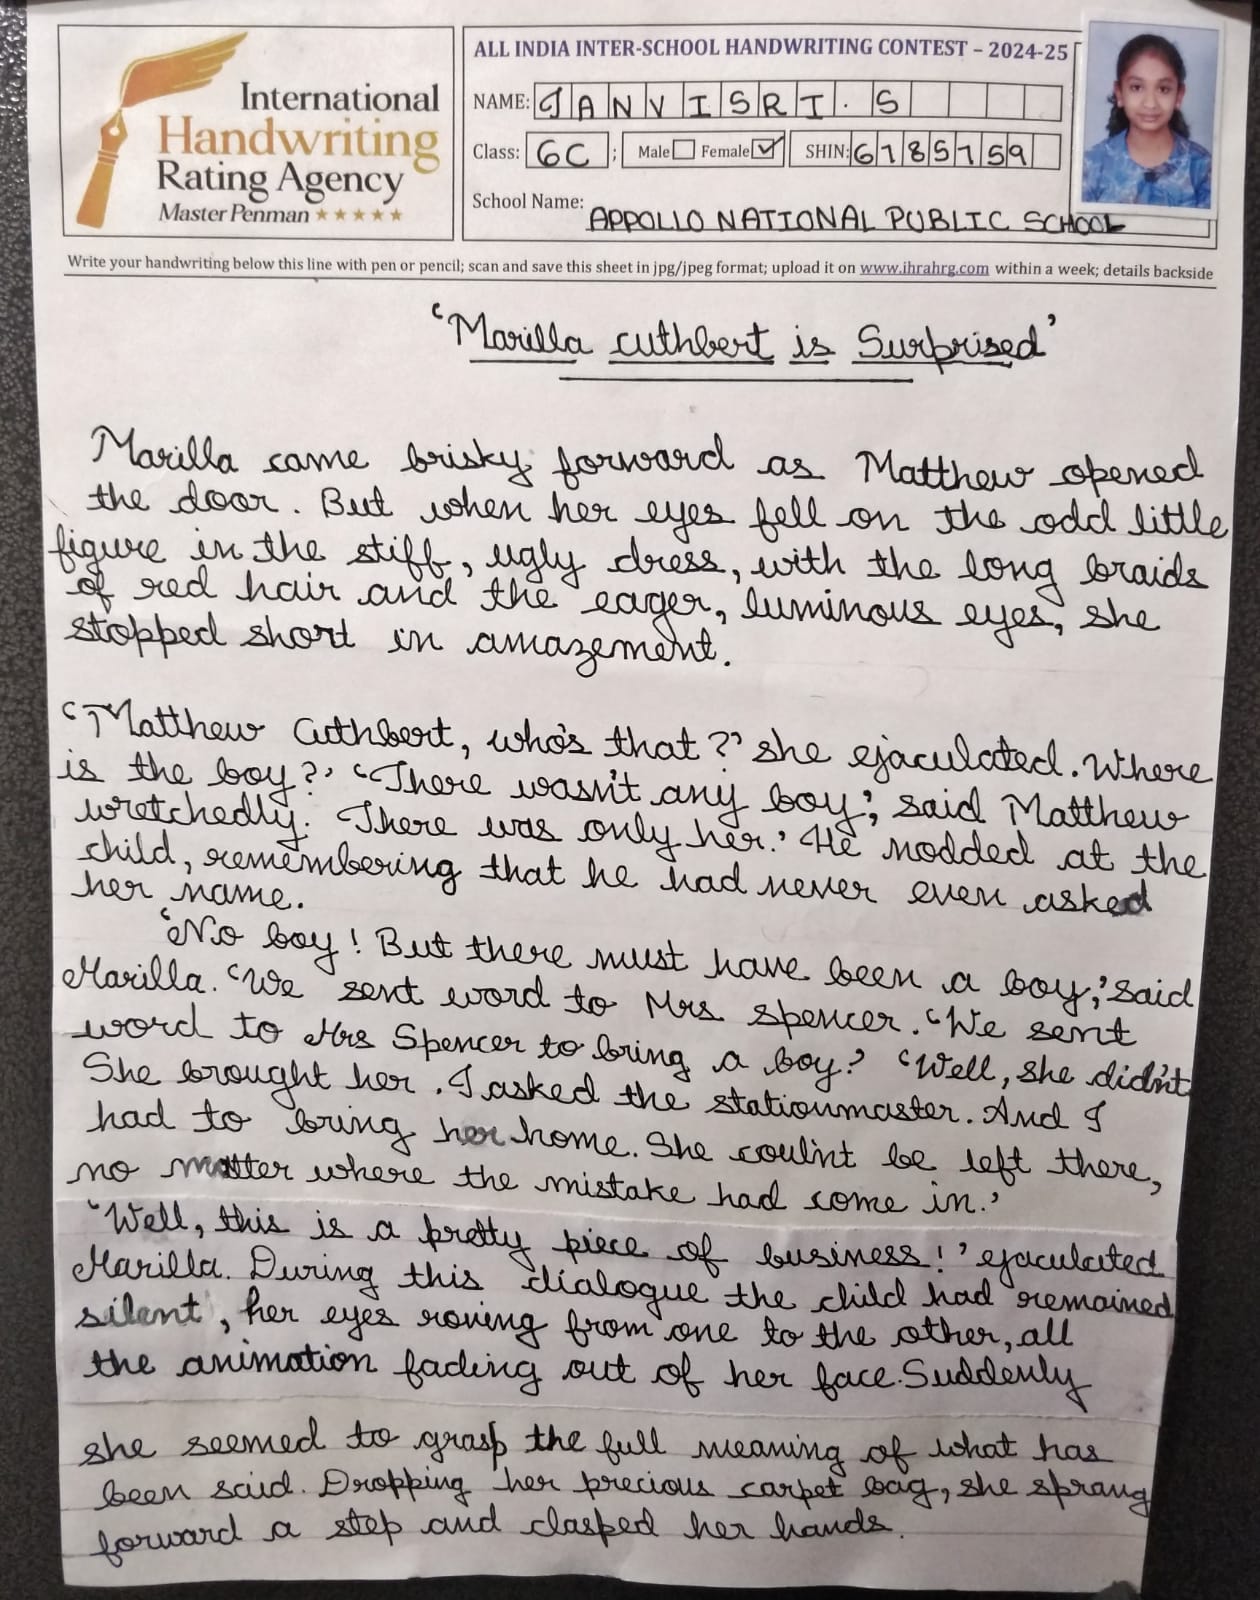 International
Handwriting
Rating Agency
Master Penman ★★★★★
ALL INDIA INTER-SCHOOL HANDWRITING CONTEST – 2024-25
NAME: JANVISRI. S
Class: 6C ; Male Female ✓ SHIN: 6785759
School Name: APPOLLO NATIONAL PUBLIC SCHOOL
Write your handwriting below this line with pen or pencil; scan and save this sheet in jpg/jpeg format; upload it on www.ihrahrg.com within a week; details backside
'Marilla cuthbert is Surprised'
Marilla came brisky forward as Matthew opened
the door. But when her eyes fell on the odd little
figure in the stiff, ugly dress, with the long braids
of red hair and the eager, luminous eyes, she
stopped short in amazement.
'Matthew Cuthbert, who's that?' she ejaculated. Where
is the boy?' 'There wasn't any boy,' said Matthew
wretchedly. There was only her.' He nodded at the
child, remembering that he had never even asked
her name.
'No boy! But there must have been a boy,' said
Marilla. 'We sent word to Mrs spencer. 'We sent
word to Mrs Spencer to bring a boy?' 'Well, she didn't
She brought her. I asked the stationmaster. And I
had to bring her home. She could'nt be left there,
no matter where the mistake had come in.'
'Well, this is a pretty piece of business!' ejaculated
Marilla. During this dialogue the child had remained
silent, her eyes roving from one to the other, all
the animation fading out of her face. Suddenly
she seemed to grasp the full meaning of what has
been said. Dropping her precious carpet bag, she sprang
forward a step and clasped her hands.